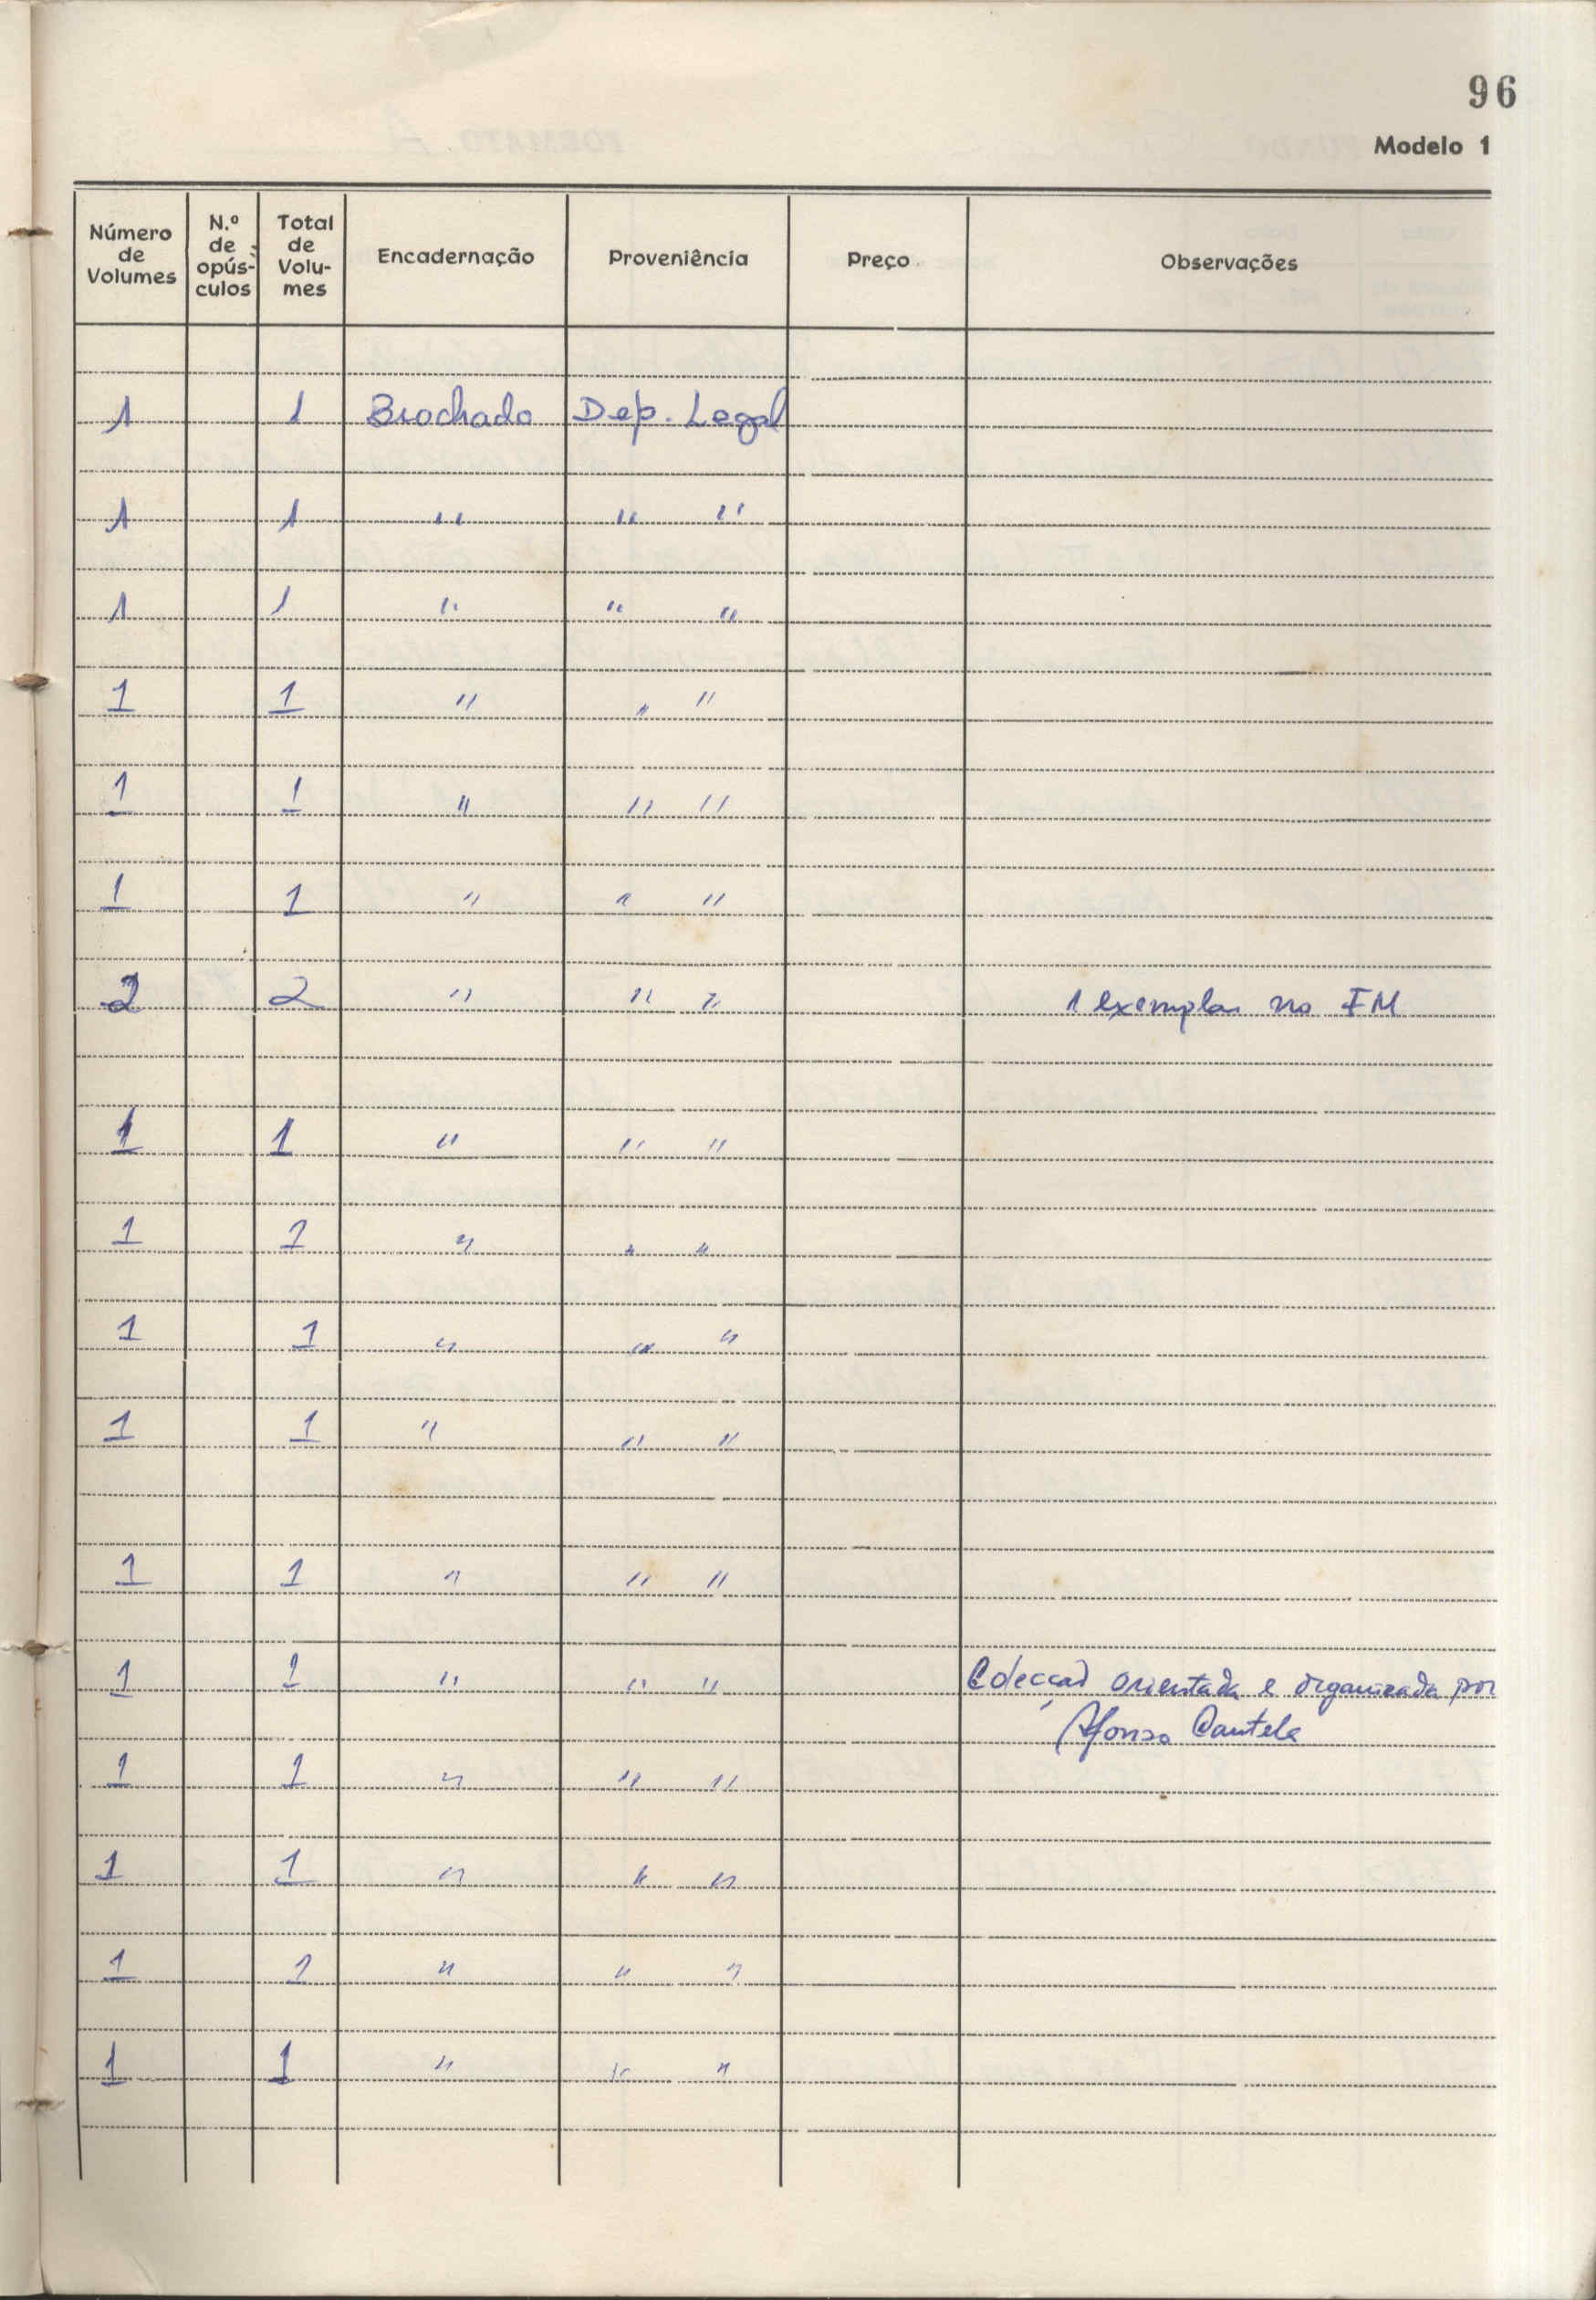 96
Modelo 1
Número de Volumes N.º de opús-culos Total de Volu-mes Encadernação Proveniência Preço Observações
1 1 Brochado Dep. Legal
1 1 " " "
1 1 " " "
1 1 " " "
1 1 " " "
1 1 " " "
2 2 " " " 1 exemplar no FM
1 1 " " "
1 1 " " "
1 1 " " "
1 1 " " "
1 1 " " "
1 1 " " " Colecção orientada e organizada por
Afonso Cautela
1 1 " " "
1 1 " " "
1 1 " " "
1 1 " " "